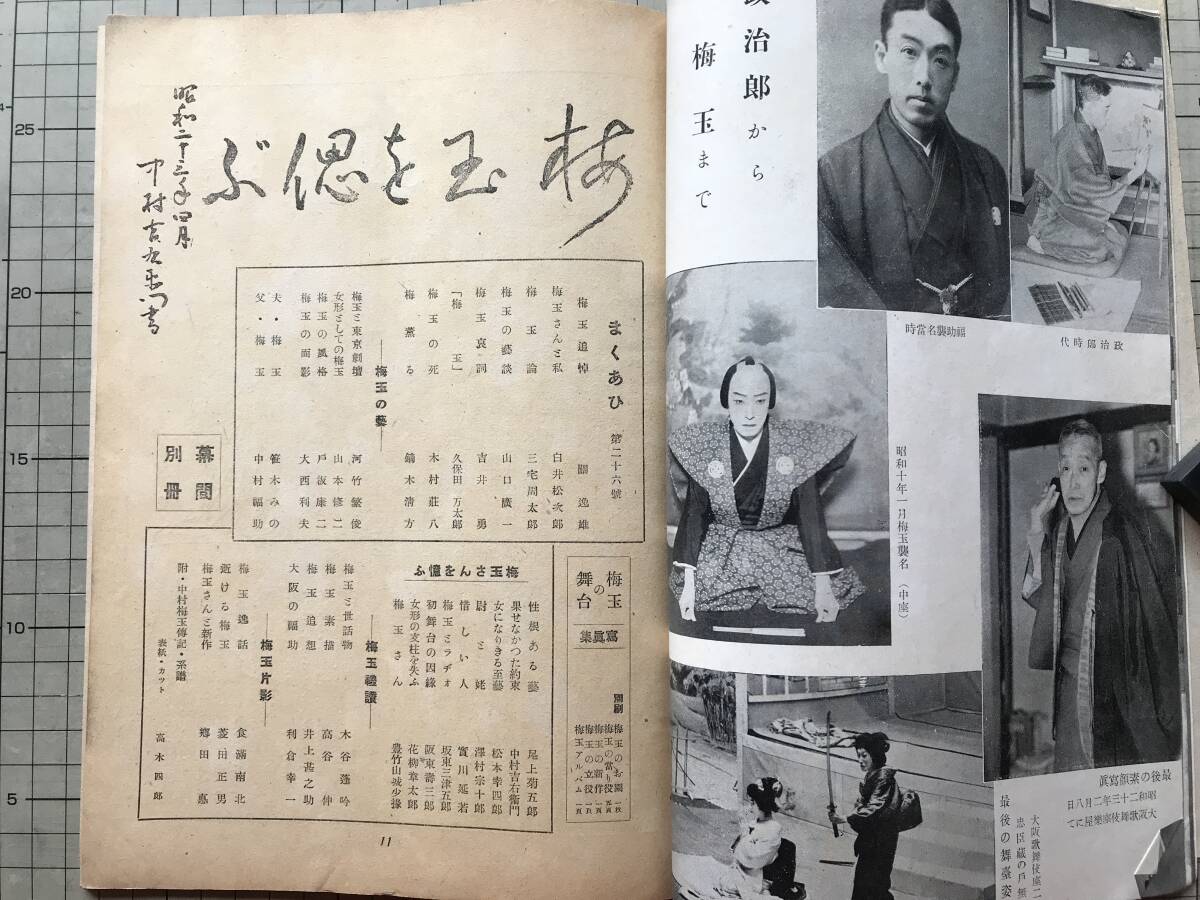 政治郎から
梅玉まで
福助襲名當時
政治郎時代
昭和十年一月梅玉襲名（中座）
最後の素顏寫眞
昭和二十三年二月八日
大阪歌舞伎座樂屋にて
大阪歌舞伎座二
忠臣藏の戸無
最後の舞臺姿
梅玉を偲ぶ
昭和二十三年四月
中村吉右衛門書
まくあひ 第二十六號
梅玉追悼 關逸雄
梅玉さんと私 白井松次郎
梅玉論 三宅周太郎
梅玉の藝談 山口廣一
梅玉哀詞 吉井勇
「梅玉」 久保田万太郎
梅玉の死 木村莊八
梅薫る 鏑木清方
―梅玉の藝―
梅玉と東京劇壇 河竹繁俊
女形としての梅玉 山本修二
梅玉の風格 戸板康二
梅玉の面影 大西利夫
夫・梅玉 笹木みの
父・梅玉 中村福助
幕間
別冊
梅玉の舞台
寫眞集
別刷
梅玉のお園 一枚
梅玉の當り役 五頁
梅玉の新作 一頁
梅玉の立役 一頁
梅玉アルバム 一頁
梅玉さんを憶ふ
性根ある藝 尾上菊五郎
果せなかつた約束 中村吉右衛門
女になりきる至藝 松本幸四郎
尉と姥 澤村宗十郎
惜しい人 實川延若
梅玉とラヂオ 坂東三津五郎
初舞台の因縁 阪東壽三郎
女形の支柱を失ふ 花柳章太郎
梅玉さん 豊竹山城少掾
―梅玉禮讃―
梅玉と世話物 木谷蓬吟
梅玉素描 高谷伸
梅玉追想 井上甚之助
大阪の福助 利倉幸一
―梅玉片影―
梅玉逸話 食滿南北
逝ける梅玉 菱田正男
梅玉さんと新作 郷田悳
附・中村梅玉傳記・系譜
表紙・カット 高木四郎
11
25
20
15
10
5